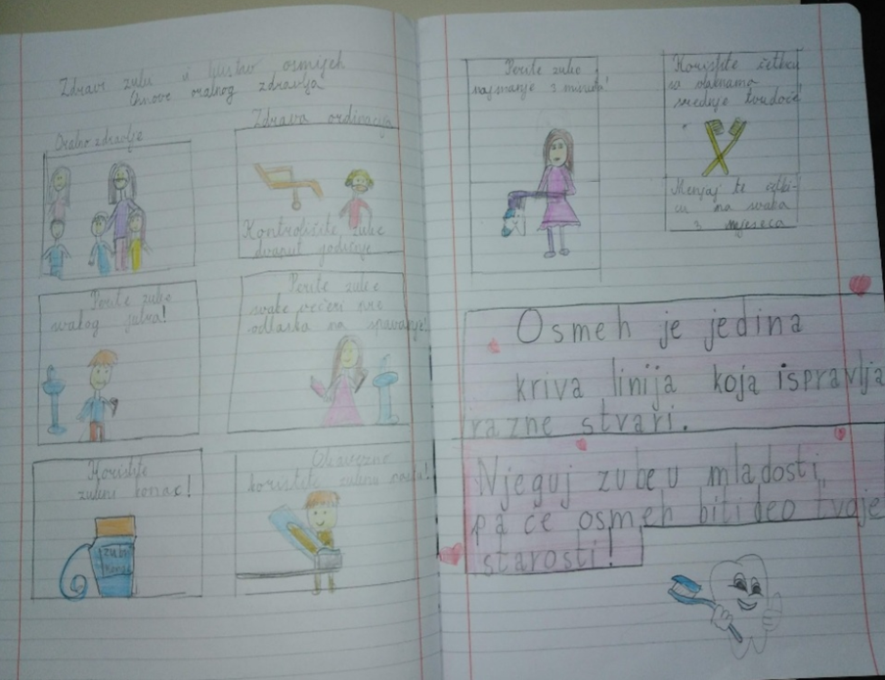 Zdravi zubi i
osnove oralnog zdravlja
Oralno zdravlje
Zdrava ordinacija
Kontrolišite zube
dvaput godišnje
Perite zube
svakog jutra!
Perite zube
svake večeri pre
odlaska na spavanje!
Koristite
zubni konac!
zubni
konac
Obavezno
koristite zubnu pastu!
Perite zube
najmanje 3 minuta!
Koristite četkicu
sa vlaknama
srednje tvrdoće
Menjaj te četki-
cu na svaka
3 mjeseca
Osmeh je jedina
kriva linija koja ispravlja
razne stvari.
Njeguj zube u mladosti,
pa će osmeh biti deo tvoje
starosti!